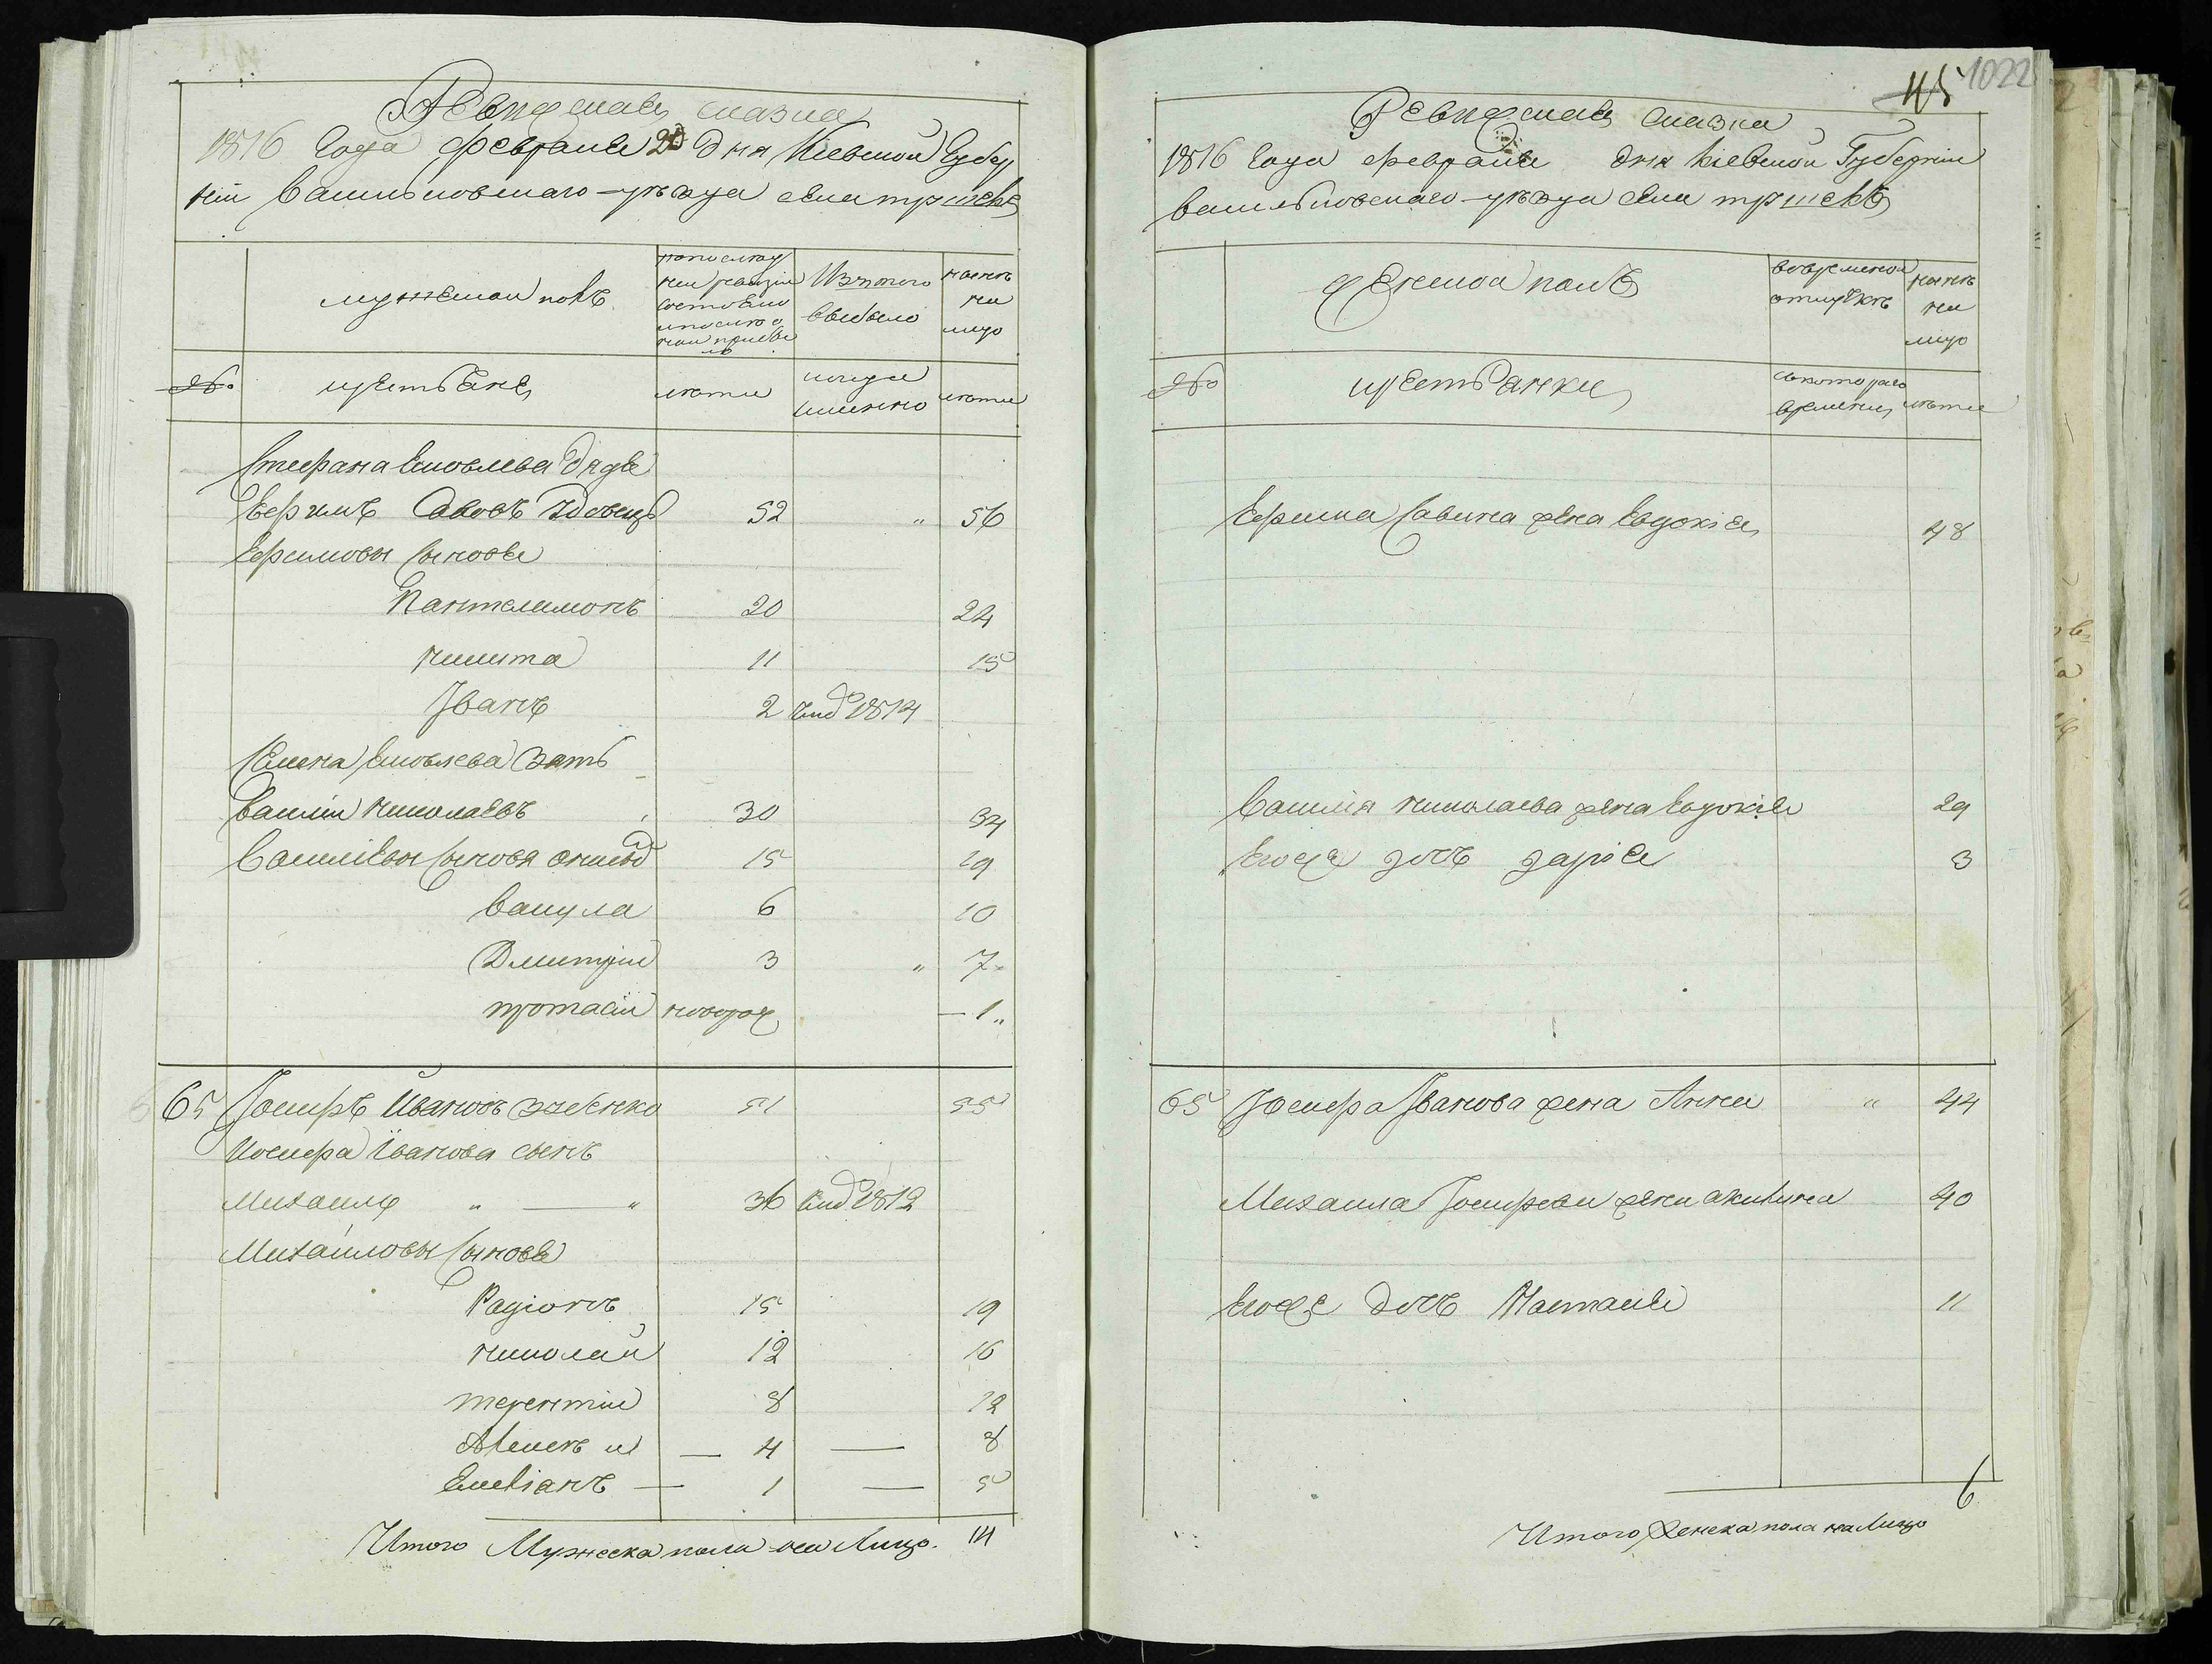 Ревизская сказка
1816 Года февраля 20 дня Киевской Губер
нии Васильковского уезда села
мужеской полъ
по последней ревизии состояло и после того прибыло
Изъ того выбыло
ныне на лицо
№
крестьяне
лета
когда именно
лета
Стефана Яковлева дядя
Ефимъ Савовъ 52 " 56
Ефимовы сыновья
Пантелимонъ 20 24
никита 11 15
Іванъ 2 1814
Семена Яковлева зять
Василий николаевъ 30 34
Василиевы сыновя 15 19
Вакула 6 10
Дмитрий 3 " 7
протасий новорож 1
65 Іосифъ Ивановъ 51 55
Иосифа Іванова сынъ
Михаилъ " — " 36 1812
Михайловы сыновья
Радіонъ 15 19
николай 12 16
терентий 8 12
— 4 — 8
Емелианъ — 1 — 5
Итого Мужеска пола на Лицо. 14
115 1022
Ревизская сказка
1816 Года февраля дня Кіевской Губернии
Васильковского уезда села
женской полъ
во временной отлучке
ныне на лицо
№
крестьянки
с которого времени
лета
Ефима Савина жена Евдокия 48
Василия николаева жена Евдокия 29
Его же дочь дария 3
65 Іосифа Іванова жена Анна " 44
Михаила Іосифова жена акилина 40
Его же дочь Настасия 11
6
Итого Женска пола на Лицо